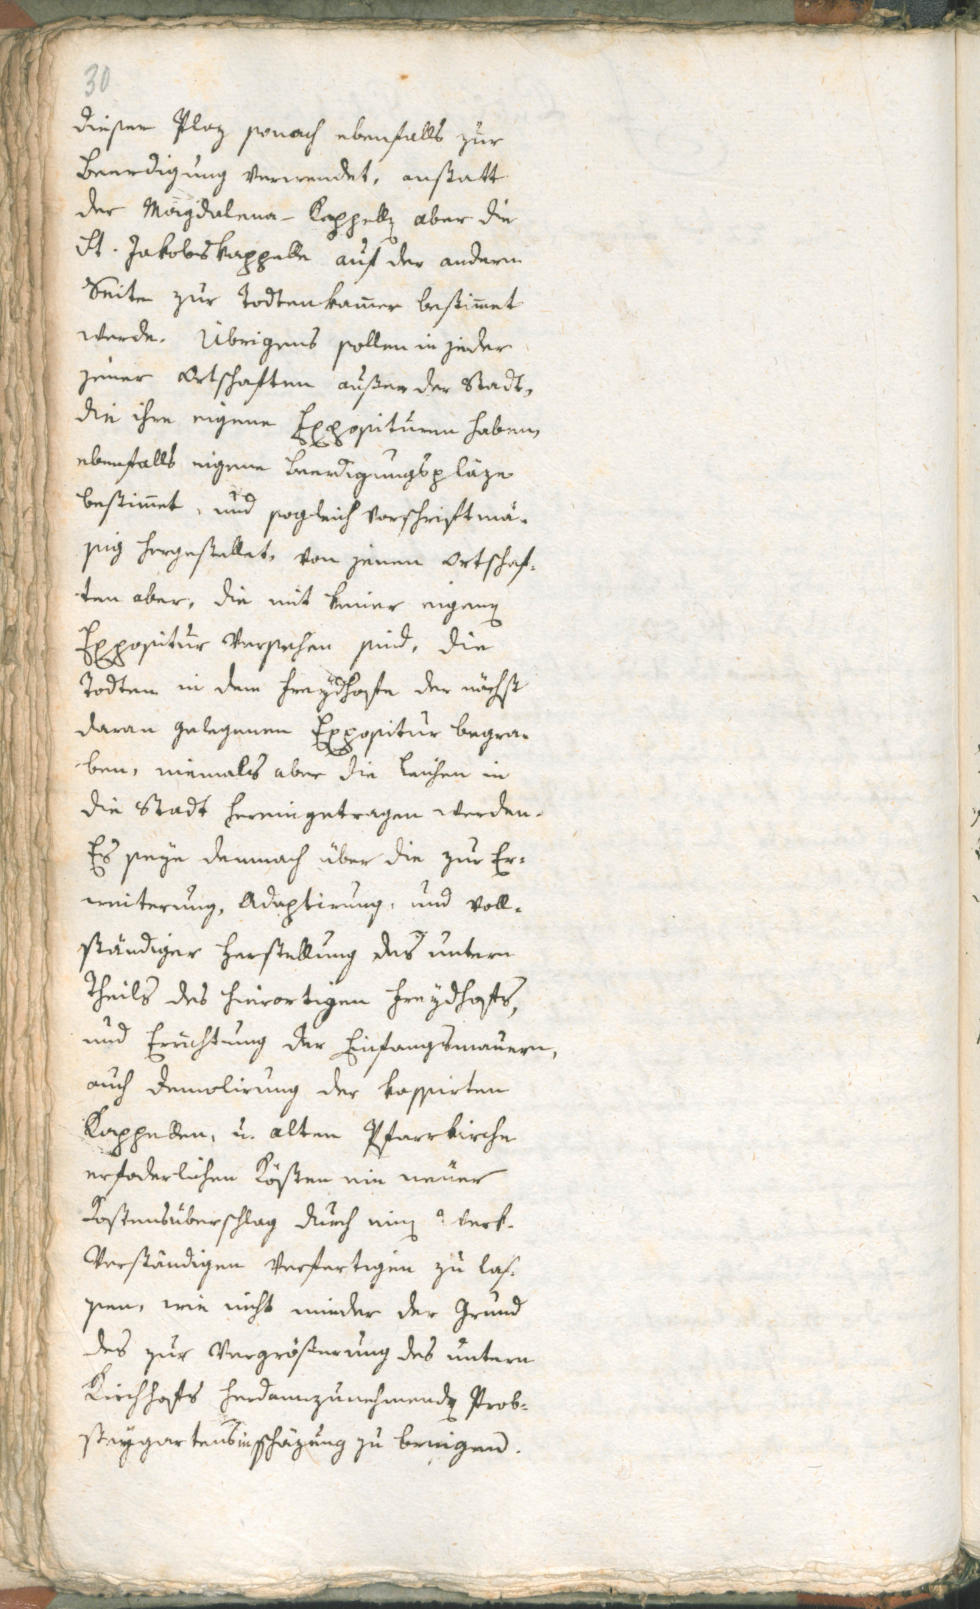 30
dieser Plaz sonach ebenfalls zur
Beerdigung verwendet, anstatt
der Magdalena-Kappelle aber die
St. Jakobskappelle auf der andern
Seite zur Todtenkam̄er bestim̄et
werde. Übrigens sollen in jeder
jener Ortschaften ausser der Stadt,
die ihre eigene Exposituren haben,
ebenfalls eigene Beerdigungspläze
bestim̄et, und sogleich vorschriftmä-
sig hergestellet, von jenen Ortschaf-
ten aber, die mit keiner eigenen
Expositur versehen sind, die
Todten in dem Freydhofe der nächst
daran gelegenen Expositur begra-
ben, niemals aber die Leichen in
die Stadt hereingetragen werden.
Es seye demnach über die zur Er-
weiterung, Adaptirung, und voll-
ständiger Herstellung des untern
Theils des hierortigen Freydhofs,
und Errichtung der Einfangsmauern,
auch Demolirung der kassirten
Kappellen, u. alten Pfarrkirche
erfoderlichen Kösten ein neuer
Kostensüberschlag durch einen Werk-
Verständigen verfertigen zu las-
sen, wie nicht minder der Grund
des zur Vergrößerung des untern
Kirchhofs herdannzunehmenden Prob-
steygartens in Schäzung zu bringen.